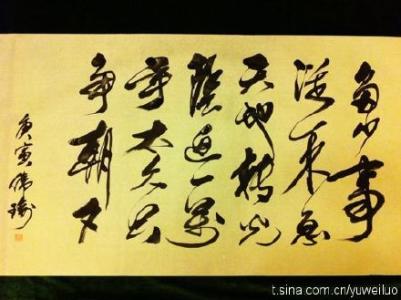 多少事
從来急
天地轉光
陰迫一萬
年太久只
争朝夕
庚寅
t.sina.com.cn/yuweiluo